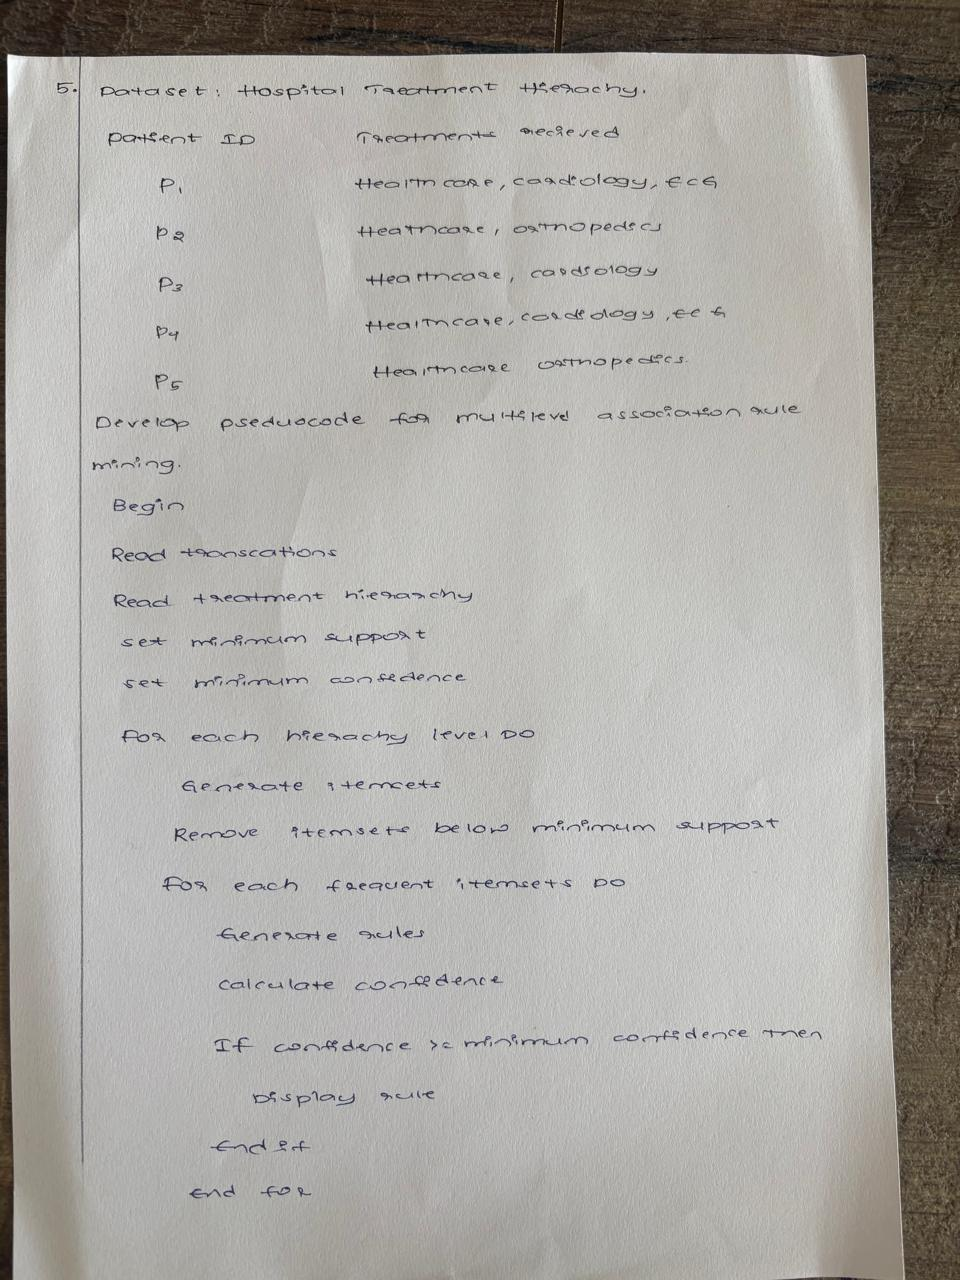 5. Dataset: Hospital Treatment Hierachy.
Patient ID Treatments recieved
P1 Healthcare, cardiology, ECG
P2 Heathcare, orthopedics
P3 Healthcare, cardiology
P4 Healthcare, cardiology, ECG
P5 Healthcare orthopedics.
Develop pseduocode for multilevel association rule
mining.
Begin
Read transcations
Read treatment hierarchy
set minimum support
set minimum confidence
For each hierachy level DO
Generate itemcets
Remove itemsets below minimum support
For each frequent itemsets DO
Generate rules
calculate confidence
If confidence >= minimum confidence then
Display rule
End if
End for